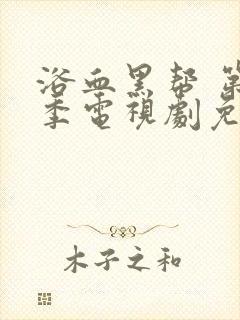 浴血黑帮 第
季電視劇免
木子之和